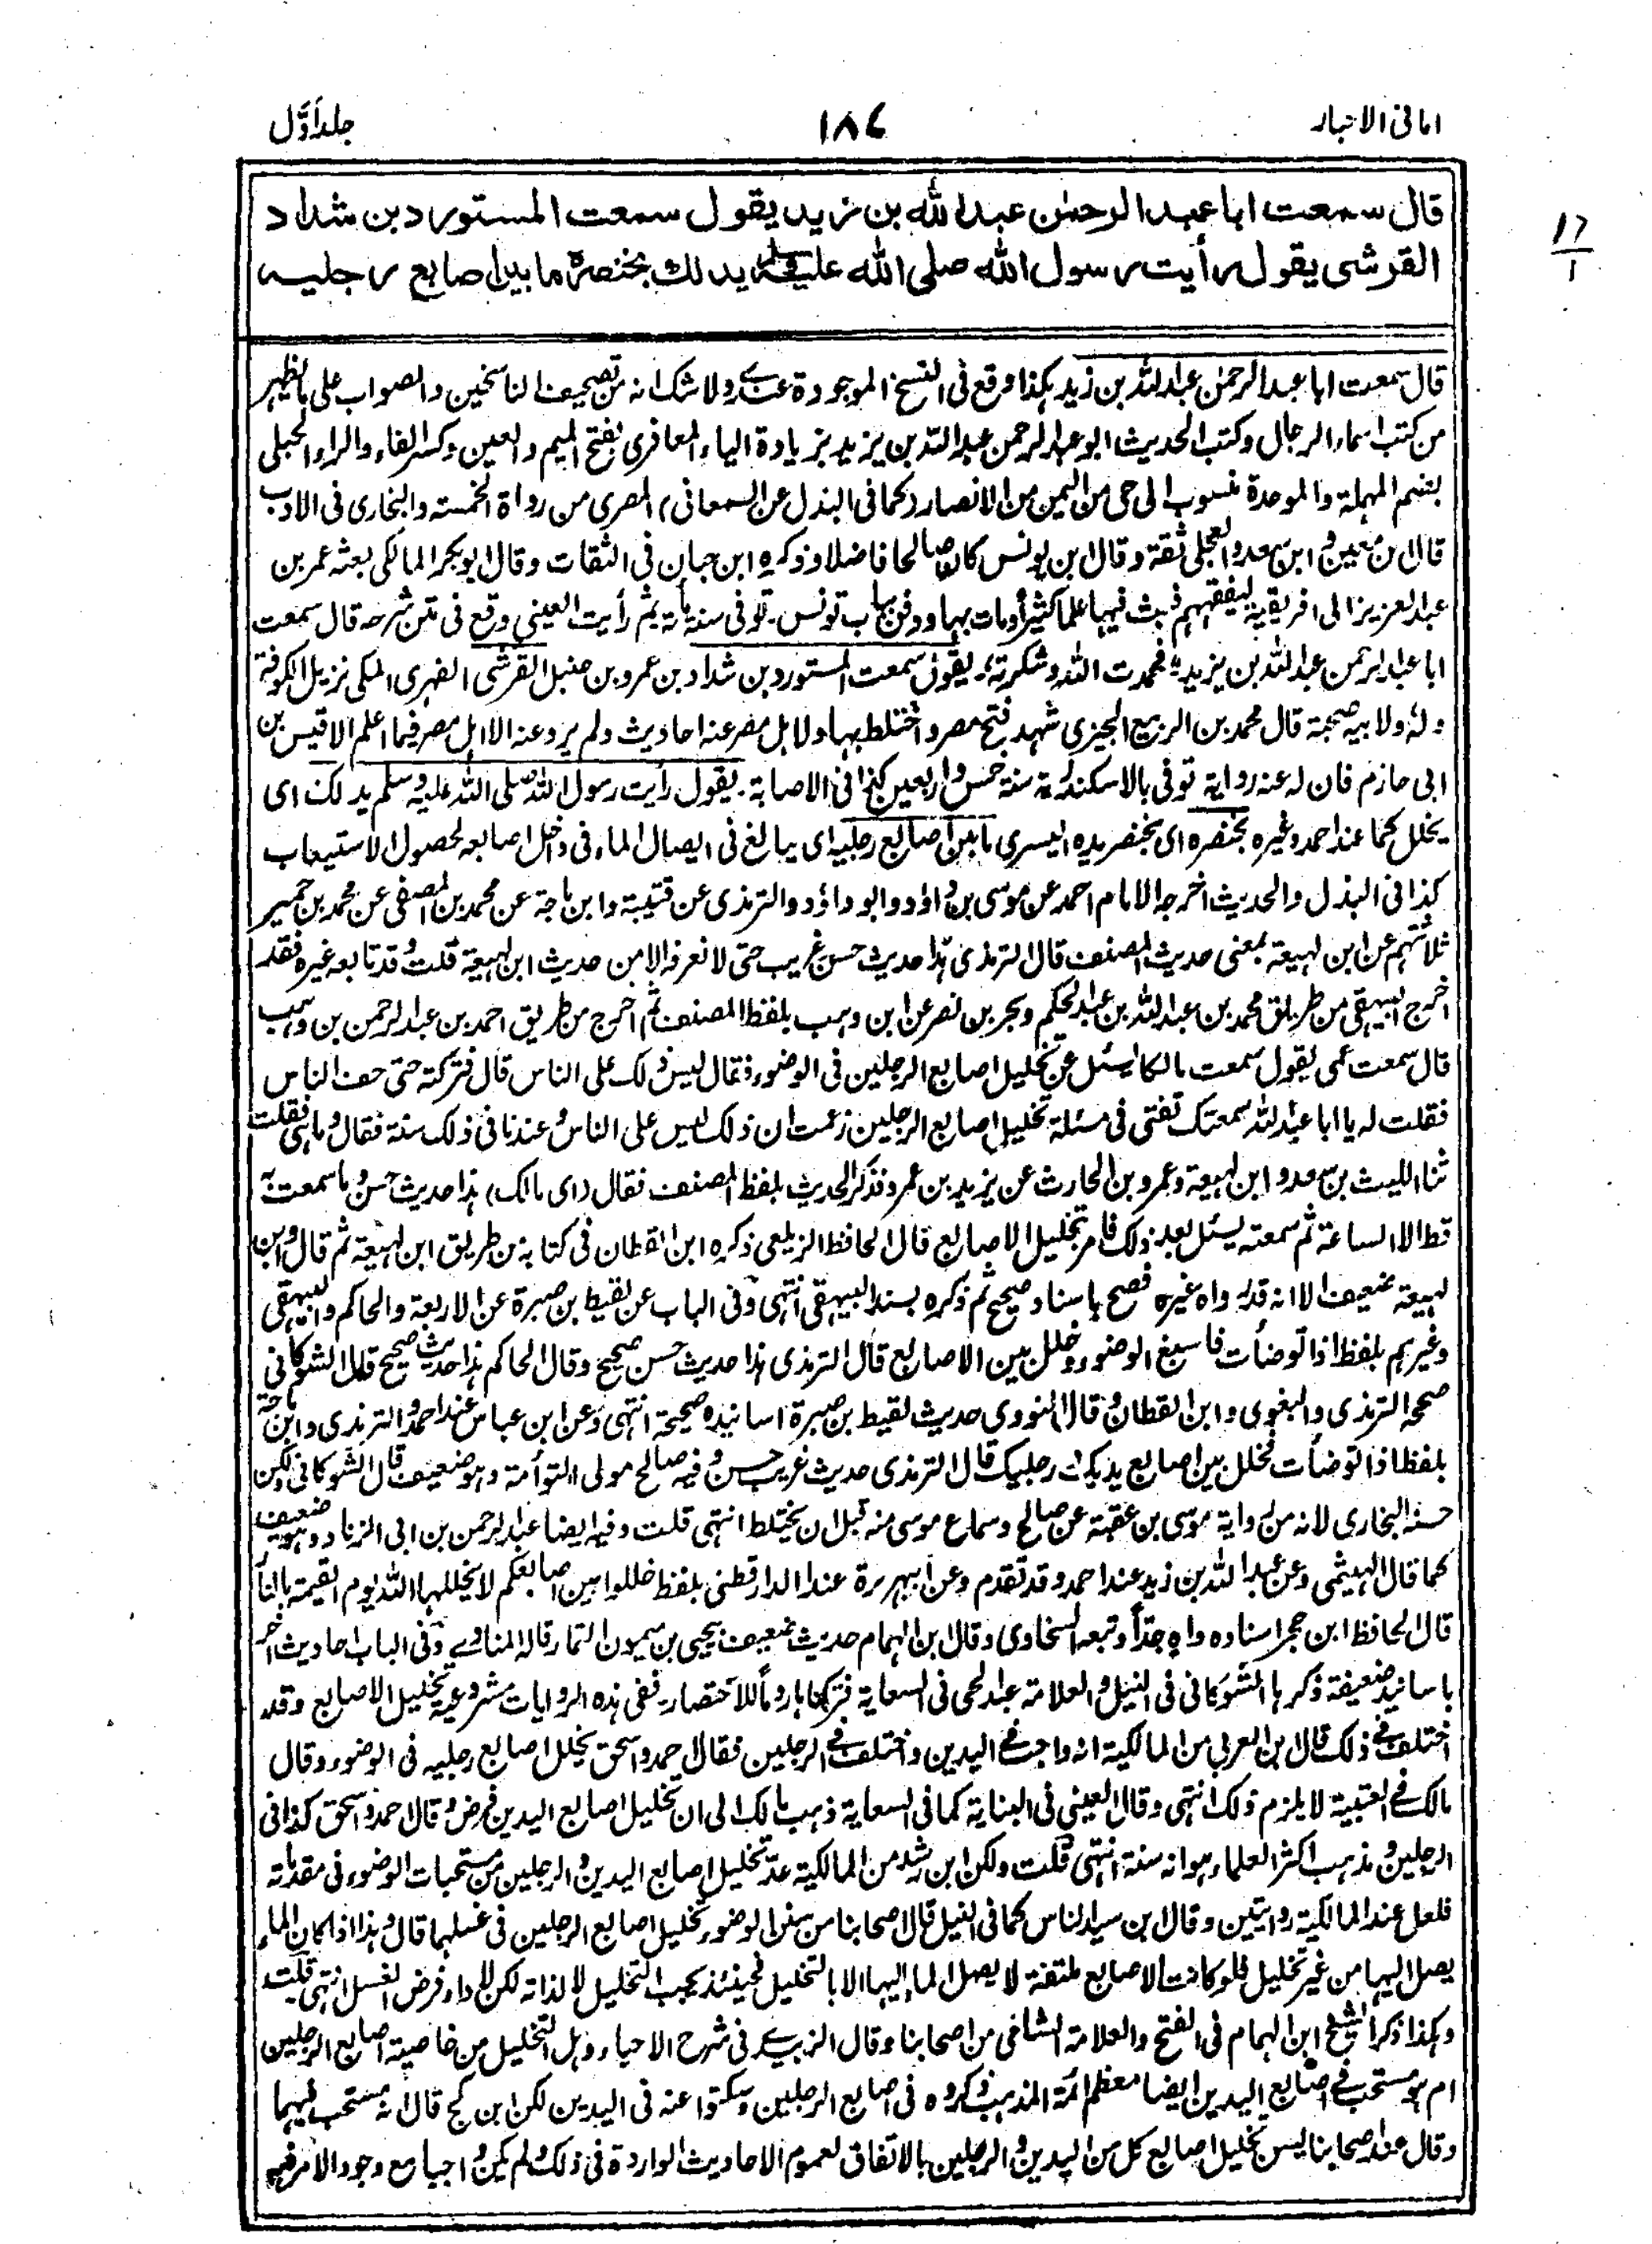 امانی الاحبار ١٨٧ جلد اوّل
قال سمعت ابا عبد الرحمٰن عبد الله بن زيد يقول سمعت المستورد بن شداد
القرشى يقول رأيت رسول الله صلى الله عليه وسلم يدلك بخنصره ما بين اصابع رجليه
١٢
١
قال سمعت ابا عبد الرحمٰن عبد اللہ بن زيد ہكذا وقع فى النسخ الموجودة عندے ولا شك انہ من تصحيف الناسخين والصواب على ما يظہر
من كتب اسماء الرجال وكتب الحديث ابو عبد الرحمن عبد اللہ بن يزيد بزيادة الياء المعافرى بفتح الميم والعين وكسر الفاء والراء الحبلى
بضم المہملة والموحدة منسوب الى حى من اليمن من الانصار (كما فى البذل عن السمعانى) المصرى من رواة الخمسة والبخارى فى الادب
قال ابن معين و ابن سعد والعجلى ثقة وقال ابن يونس كان صالحا فاضلا وذكره ابن حبان فى الثقات وقال ابو بكر المالكى بعثہ عمر بن
عبد العزيز الى افريقية ليفقہہم فبث فيہا علما كثيرا ومات بہا ودفن بباب تونس۔ توفى سنة مأتہ ثم رأيت العينى وقع فى متن شرحہ قال سمعت
ابا عبد الرحمن عبد اللہ بن يزيد فحمدت اللہ وشكرتہ، يقول سمعت المستورد بن شداد بن عمرو بن حنبل القرشى الفہرى المكى نزيل الكوفة
ولہ ولابيہ صحبة قال محمد بن الربيع الجيزى شہد فتح مصر واختلط بہا ولاہل مصر عنہ احاديث ولم يرو عنہ الا اہل مصر فيما اعلم الا قيس بن
ابى حازم فان لہ عنہ رواية توفى بالاسكندرية سنة خمس واربعين كذا فى الاصابة۔ يقول رأيت رسول اللہ صلى اللہ عليہ وسلم يدلك اى
يخلل كما عند احمد وغيره بخنصره اى بخنصر يده اليسرى ما بين اصابع رجليہ اى يبالغ فى ايصال الماء فى داخل اصابعہ لحصول الاستيعاب
كذا فى البذل والحديث اخرجہ الامام احمد عن موسى بن داؤد وابو داؤد والترمذى عن قتيبة وابن ماجة عن محمد بن المصفى عن محمد بن حمير
ثلاثتہم عن ابن لہيعة بمعنى حديث المصنف قال الترمذى ہذا حديث حسن غريب حتى لا نعرفہ الا من حديث ابن لہيعة قلت وقد تابعہ غيره فقد
اخرج البيہقى من طريق محمد بن عبد اللہ بن عبد الحكم وبحر بن نصر عن ابن وہب بلفظ المصنف ثم اخرج من طريق احمد بن عبد الرحمن بن وہب
قال سمعت عمى يقول سمعت مالكا يسئل عن تخليل اصابع الرجلين فى الوضوء فقال ليس ذلك على الناس قال فتركتہ حتى خف الناس
فقلت لہ يا ابا عبد اللہ سمعتك تفتى فى مسئلة تخليل اصابع الرجلين زعمت ان ذلك ليس على الناس وعندنا فى ذلك سنة فقال وما ہى فقلت
ثنا الليث بن سعد وابن لہيعة وعمرو بن الحارث عن يزيد بن عمرو فذكر الحديث بلفظ المصنف فقال (اى مالك) ہذا حديث حسن وما سمعت بہ
قط الا الساعة ثم سمعتہ يسئل بعد ذلك فامر بتخليل الاصابع قال الحافظ الزيلعى ذكره ابن القطان فى كتابہ من طريق ابن لہيعة ثم قال وابن
لہيعة ضعيف الا انہ قد رواه غيره فصح باسناد صحيح ثم ذكره بسند البيہقى انتہى وفى الباب عن لقيط بن صبرة عن الاربعة والحاكم والبيہقى
وغيرہم بلفظ اذا توضأت فاسبغ الوضوء وخلل بين الاصابع قال الترمذى ہذا حديث حسن صحيح وقال الحاكم ہذا حديث صحيح قال الشوكانى
صححہ الترمذى والبغوى وابن القطان وقال النووى حديث لقيط بن صبرة اسانيده صحيحة انتہى وعن ابن عباس عند احمد والترمذى وابن ماجة
بلفظ اذا توضأت فخلل بين اصابع يديك ورجليك قال الترمذى حديث غريب حسن وفيہ صالح مولى التوأمة وہو ضعيف قال الشوكانى ولكن
حسنہ البخارى لانہ من رواية موسى بن عقبة عن صالح وسماع موسى منہ قبل ان يختلط انتہى قلت وفيہ ايضا عبد الرحمن بن ابى الزناد وہو ضعيف
كما قال الہيثمى وعن عبد اللہ بن زيد عند احمد وقد تقدم وعن ابى ہريرة عند الدارقطنى بلفظ خللوا بين اصابعكم لا يخللہا اللہ يوم القيمة بالنار
قال الحافظ ابن حجر اسناده واه جداً وتبعہ السخاوى وقال ابن الہمام حديث ضعيف بيحيى بن ميمون التمار قالہ المناوے وفى الباب احاديث اخر
باسانيد ضعيفة ذكرہا الشوكانى فى النيل والعلامة عبد الحى فى السعاية فتركناہا روماً للاختصار ففى ہذه الروايات مشروعية تخليل الاصابع وقد
اختلف فے ذلك قال ابن العربى من المالكية انہ واجب فے اليدين واختلف فے الرجلين فقال احمد واسحق يخلل اصابع رجليہ فى الوضوء وقال
مالك فے العتبية لا يلزم ذلك انتہى وقال العينى فى البناية كما فى السعاية ذہب مالك الى ان تخليل اصابع اليدين فرض وقال احمد واسحق كذا فى
الرجلين ومذہب اكثر العلماء ہو انہ سنة انتہى قلت ولكن ابن رشد من المالكية عدّ تخليل اصابع اليدين والرجلين من مستحبات الوضوء فى مقدماتہ
فلعل عند المالكية روايتين وقال ابن سيد الناس كما فى النيل قال اصحابنا من سنن الوضوء تخليل اصابع الرجلين فى غسلہما قال وہذا اذا كان الماء
يصل اليہا من غير تخليل فلو كانت الاصابع ملتفة لا يصل الماء اليہا الا بالتخليل فحينئذ يجب التخليل لا لذاتہ لكن لاداء فرض الغسل انتہى قلت
وہكذا ذكر الشيخ ابن الہمام فى الفتح والعلامة الشامى من اصحابنا وقال الزبيدے فى شرح الاحياء وہل التخليل من خاصية اصابع الرجلين
ام ہو مستحب فے اصابع اليدين ايضا معظم ائمة المذہب ذكروه فى اصابع الرجلين وسكتوا عنہ فى اليدين لكن ابن كج قال انہ مستحب فيہما
وقال عند اصحابنا يسن تخليل اصابع كل من اليدين والرجلين بالاتفاق لعموم الاحاديث الواردة فى ذلك ولم يكن واجبا مع وجود الامر فيہ